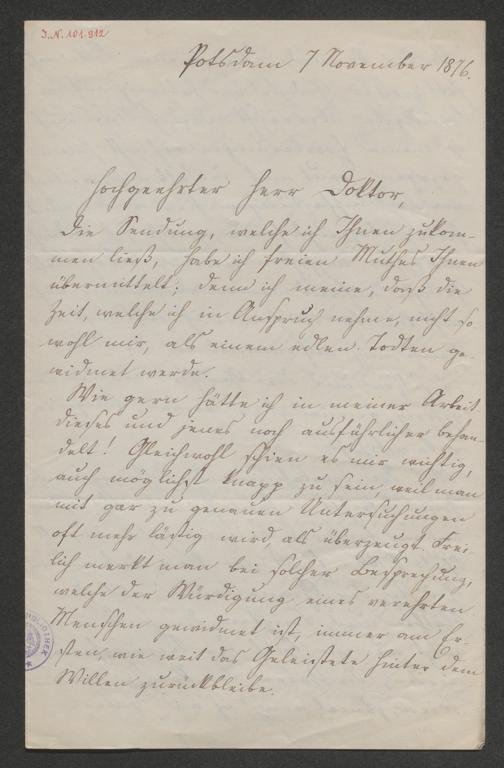 I.N. 101.912
Potsdam 7 November 1876.
Hochgeehrter Herr Doktor,
Die Sendung, welche ich Ihnen zukom-
men ließ, habe ich freien Muthes Ihnen
übermittelt; denn ich meine, daß die
Zeit, welche ich in Anspruch nehme, nicht so
wohl mir, als einem edlen Todten ge-
widmet werde.
Wie gern hätte ich in meiner Arbeit
dieses und jenes noch ausführlicher behan-
delt! Gleichwohl schien es mir wichtig,
auch möglichst knapp zu sein, weil man
mit gar zu genauen Untersuchungen
oft mehr lästig wird, als überzeugt. Frei-
lich merkt man bei solcher Besprechung,
welche der Würdigung eines verehrten
Menschen gewidmet ist, immer am Er-
sten, wie weit das Geleistete hinter dem
Willen zurückbleibe.